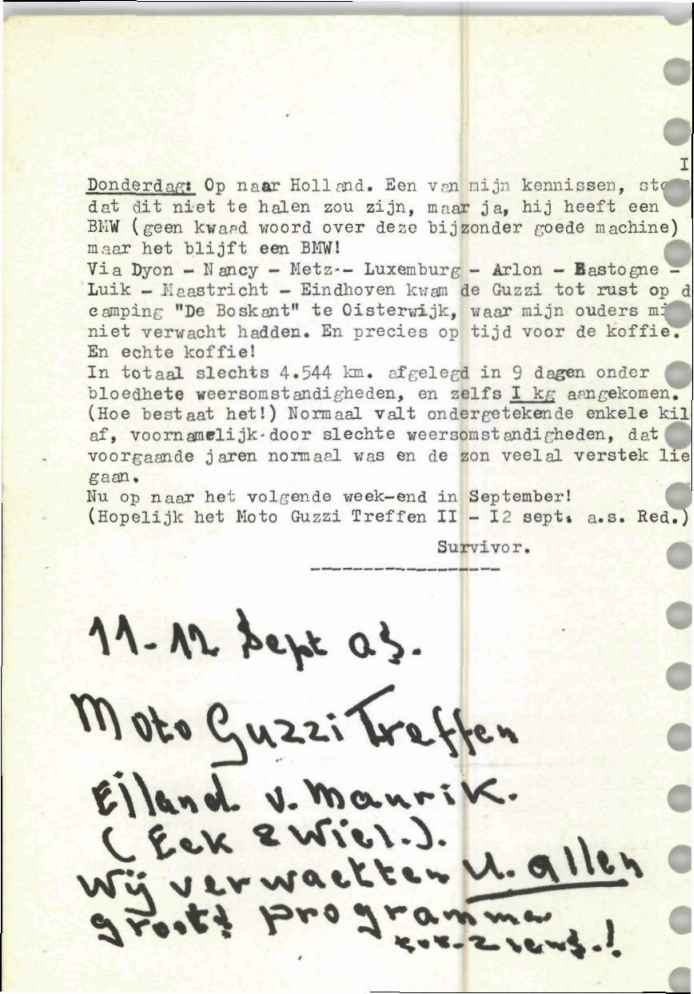 I
Donderdag: Op naar Holland. Een van mijn kennissen, ste
dat dit niet te halen zou zijn, maar ja, hij heeft een
BMW (geen kwaad woord over deze bijzonder goede machine)
maar het blijft een BMW!
Via Dyon - Nancy - Metz-- Luxemburg - Arlon - Bastogne -
Luik - Maastricht - Eindhoven kwam de Guzzi tot rust op d
camping "De Boskant" te Oisterwijk, waar mijn ouders mi
niet verwacht hadden. En precies op tijd voor de koffie.
En echte koffie!
In totaal slechts 4.544 km. afgelegd in 9 dagen onder
bloedhete weersomstandigheden, en zelfs I kg aangekomen.
(Hoe bestaat het!) Normaal valt ondergetekende enkele kil
af, voornamelijk door slechte weersomstandigheden, dat
voorgaande jaren normaal was en de zon veelal verstek lie
gaan.
Nu op naar het volgende week-end in September!
(Hopelijk het Moto Guzzi Treffen II - I2 sept. a.s. Red.)
Survivor.
11-12 Sept a.s.
Moto Guzzi Treffen
Eiland v. Maurik.
(Eck & Wiel.).
Wij verwachten U. allen
groots programma